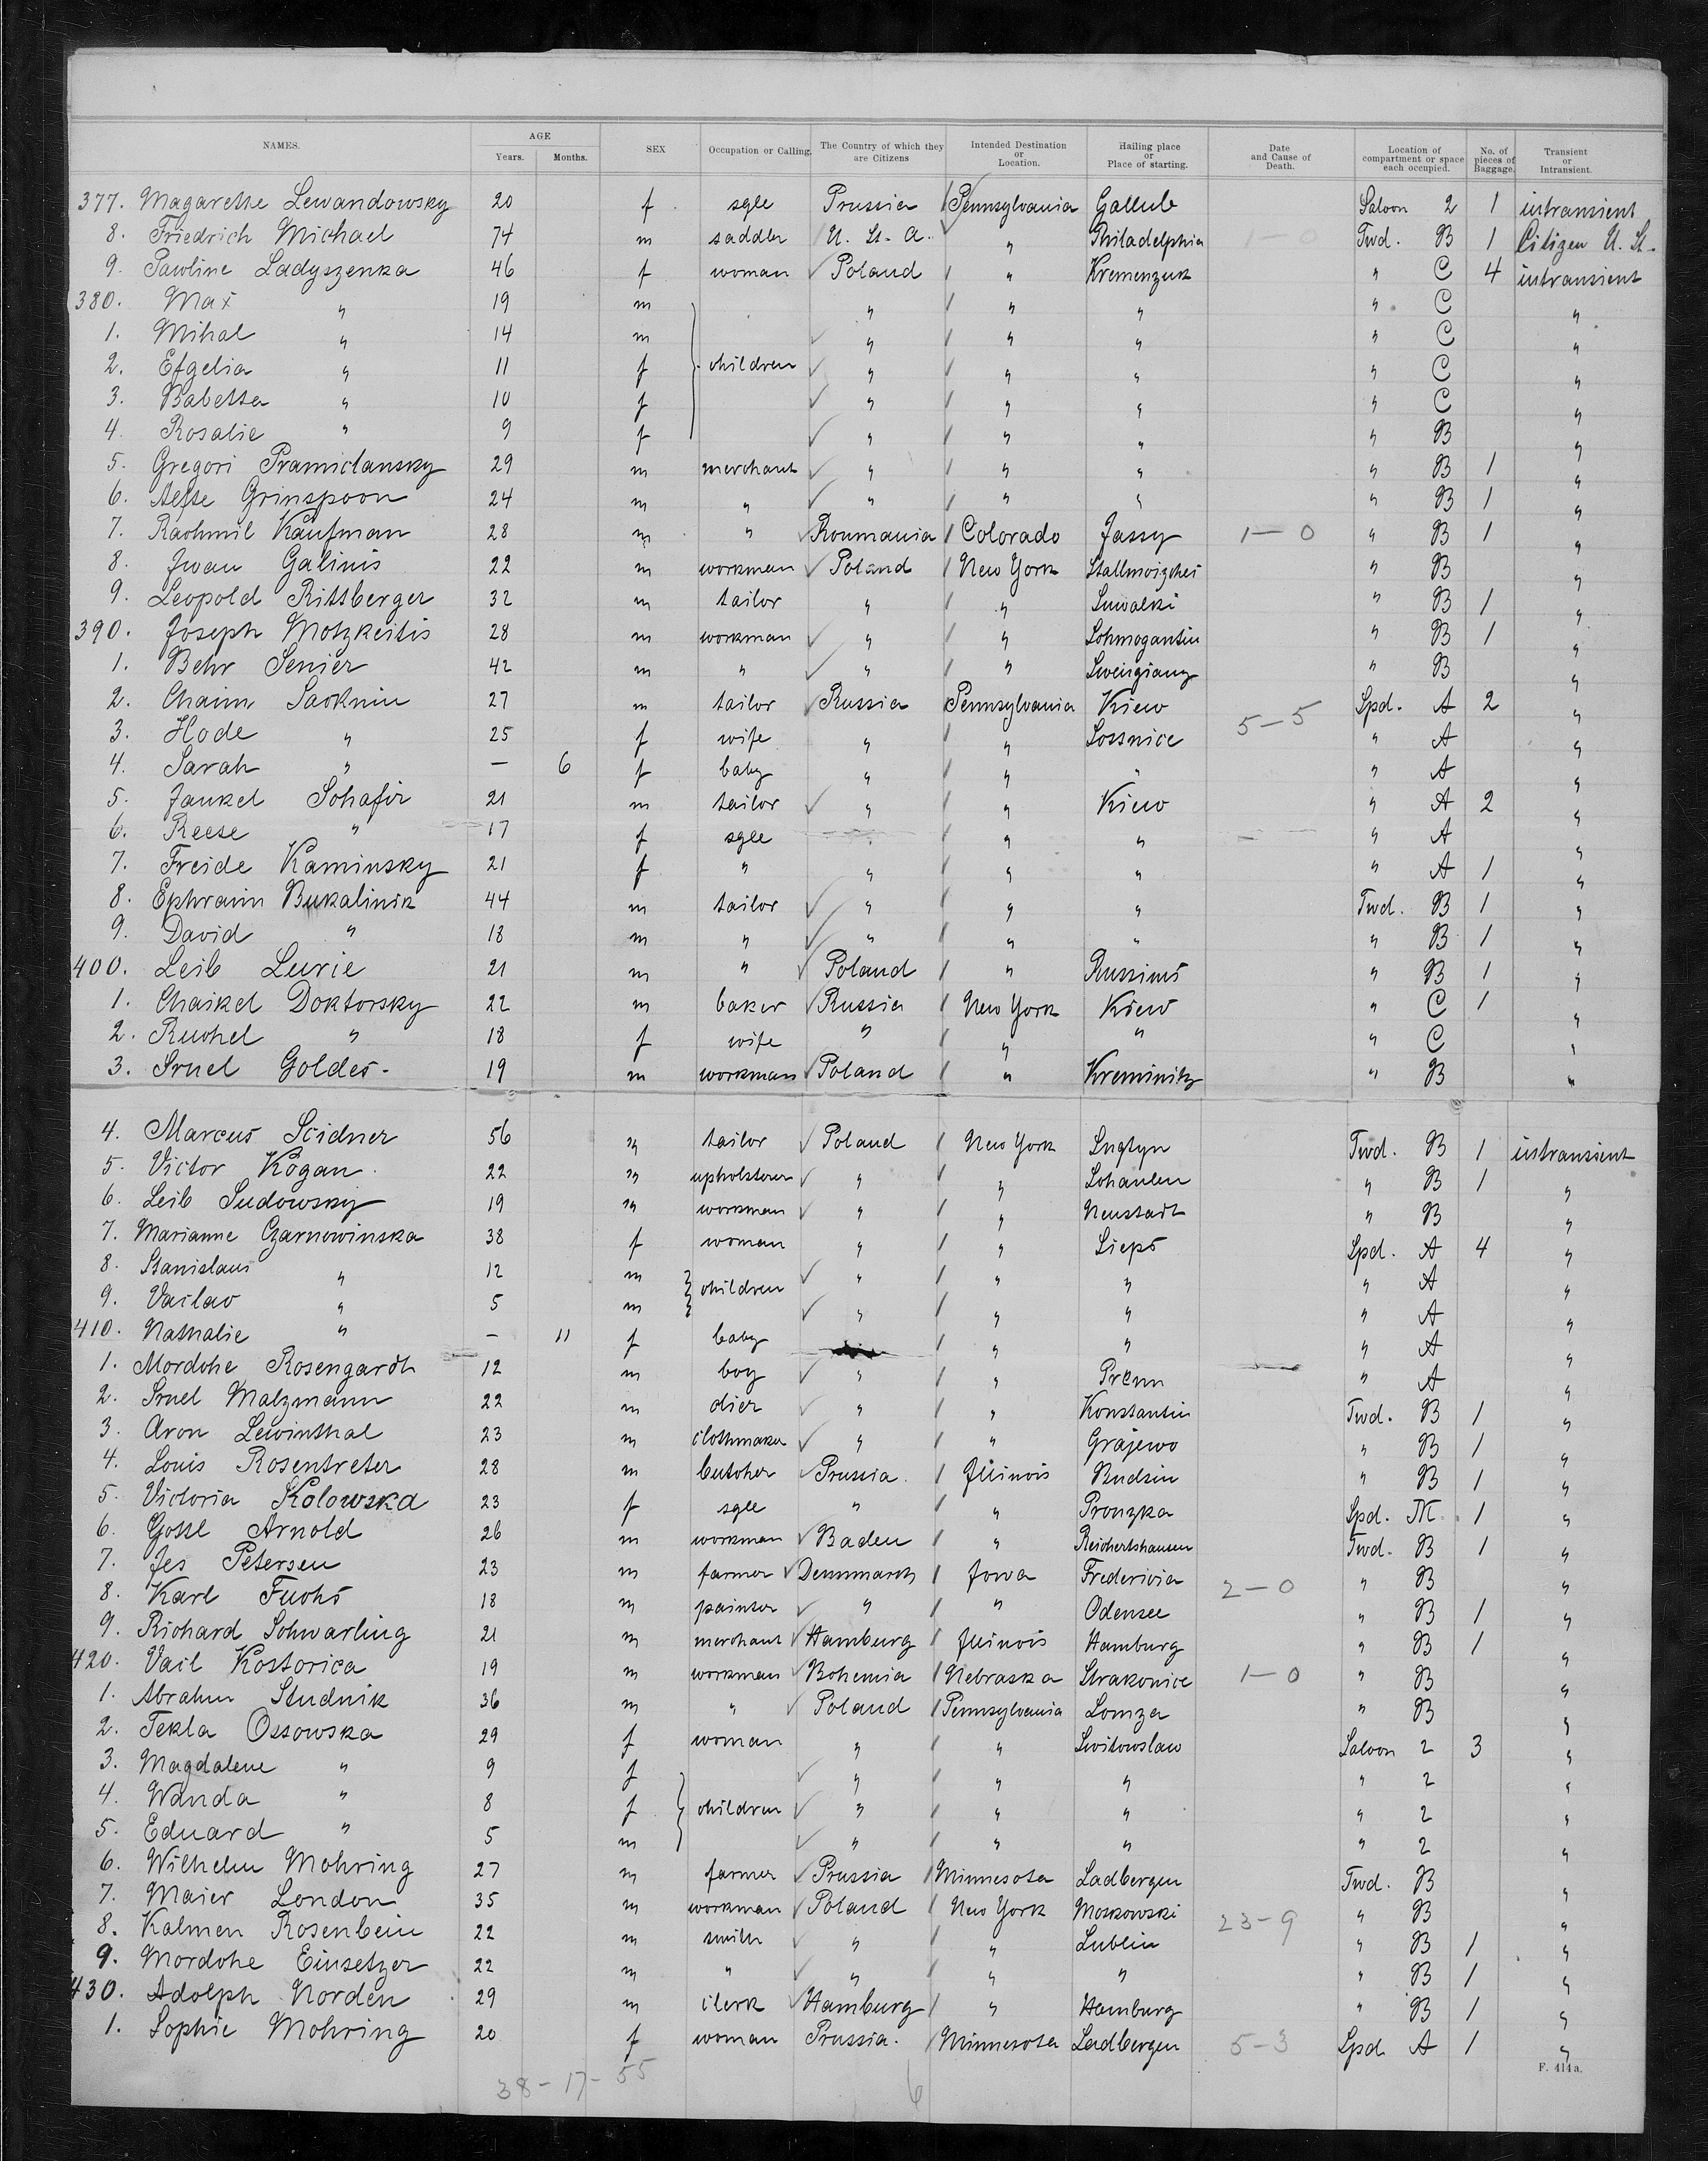 NAMES. AGE Years. Months. SEX Occupation or Calling. The Country of which they are Citizens Intended Destination or Location. Hailing place or Place of starting. Date and Cause of Death. Location of compartment or space each occupied. No. of pieces of Baggage. Transient or Intransient.
377. Magarethe Lewandowsky 20 f sgle Prussia Pennsylvania Gollub Saloon 2 1 intransient
8. Friedrich Michael 74 m saddler U. St. A. " Philadelphia 1-0 Twd. B 1 Citizen U. St.
9. Pawline Ladyszenka 46 f woman Poland " Kremenzuk " C 4 intransient
380. Max " 19 m " " " " C "
1. Mihal " 14 m " " " " C "
2. Efgelia " 11 f children " " " " C "
3. Babetta " 10 f " " " " C "
4. Rosalie " 9 f " " " " B "
5. Gregori Pramiclansky 29 m merchant " " " " B 1 "
6. Grinspoon 24 m " " " " " B 1 "
7. Rachmil Kaufman 28 m " Roumania Colorado Jassy 1-0 " B 1 "
8. Iwan Galinis 22 m workman Poland New York " B "
9. Leopold Rittberger 32 m tailor " " Suwalki " B 1 "
390. Joseph Motzkeitis 28 m workman " " " B 1 "
1. Behr Senier 42 m " " " " B "
2. Chaim Sacknin 27 m tailor Russia Pennsylvania Kiew 5-5 Spd. A 2 "
3. Hode " 25 f wife " " Sossnice " A "
4. Sarah " — 6 f baby " " " " A "
5. Jankel Schafir 21 m tailor " " Kiew " A 2 "
6. Reese " 17 f sgle " " " A "
7. Freide Kaminsky 21 f " " " " " A 1 "
8. Ephraim Bukalinik 44 m tailor " " " Twd. B 1 "
9. David " 18 m " " " " " B 1 "
400. Leib Lurie 21 m " Poland " Russins " B 1 "
1. Chaikel Doktorsky 22 m baker Russia New York Kiew " C 1 "
2. Ruchel " 18 f wife " " " " C "
3. Sruel Goldes. 19 m workman Poland " Kreminitz " B "
4. Marcus Scidner 56 " tailor Poland New York Snqtyn Twd. B 1 intransient
5. Victor Kogan 22 " upholsterer " " " B 1 "
6. Leib Sudowsky 19 " workman " " Neustadt " B "
7. Marianne Czarnowinska 38 f woman " " Lieps Spd. A 4 "
8. Stanislaus " 12 m children " " " " A "
9. Vaclav " 5 m " " " " A "
410. Nathalie " — 11 f baby " " " A "
1. Mordche Rosengardt 12 m boy " " Prenn " A "
2. Sruel Malzmann 22 m dier " " Konstantin Twd. B 1 "
3. Aron Lewinthal 23 m clothmaker " " Grajewo " B 1 "
4. Louis Rosentreter 28 m butcher Prussia Illinois Budsin " B 1 "
5. Victoria Kolowska 23 f sgle " " Pronzka Spd. M 1 "
6. Gottl Arnold 26 m workman Baden " Reichertshausen Twd. B 1 "
7. Jes Petersen 23 m farmer Dennmark Iowa Fredericia 2-0 " B "
8. Karl Fuchs 18 m painter " " Odensee " B 1 "
9. Richard Schwarling 21 m merchant Hamburg Illinois Hamburg " B 1 "
420. Vacl Kostorica 19 m workman Bohemia Nebraska Strakonice 1-0 " B "
1. Abrahm Studnik 36 m " Poland Pennsylvania Lomza " B "
2. Tekla Ossowska 29 f woman " " Switowslaw Saloon 2 3 "
3. Magdalene " 9 f " " " " 2 "
4. Wanda " 8 f children " " " " 2 "
5. Eduard " 5 m " " " " 2 "
6. Wilhelm Mohring 27 m farmer Prussia Minnesota Ladbergen Twd. B "
7. Maier London 35 m workman Poland New York Moskowski 23-9 " B "
8. Kalmen Rosenbein 22 m smith " " Lublin " B 1 "
9. Mordche Einsetzer 22 m " " " " " B 1 "
430. Adolph Norden 29 m clerk Hamburg " Hamburg " B 1 "
1. Sophie Mohring 20 f woman Prussia. Minnesota Ladbergen 5-3 Spd A 1 "
F. 414a.
38-17-55 6